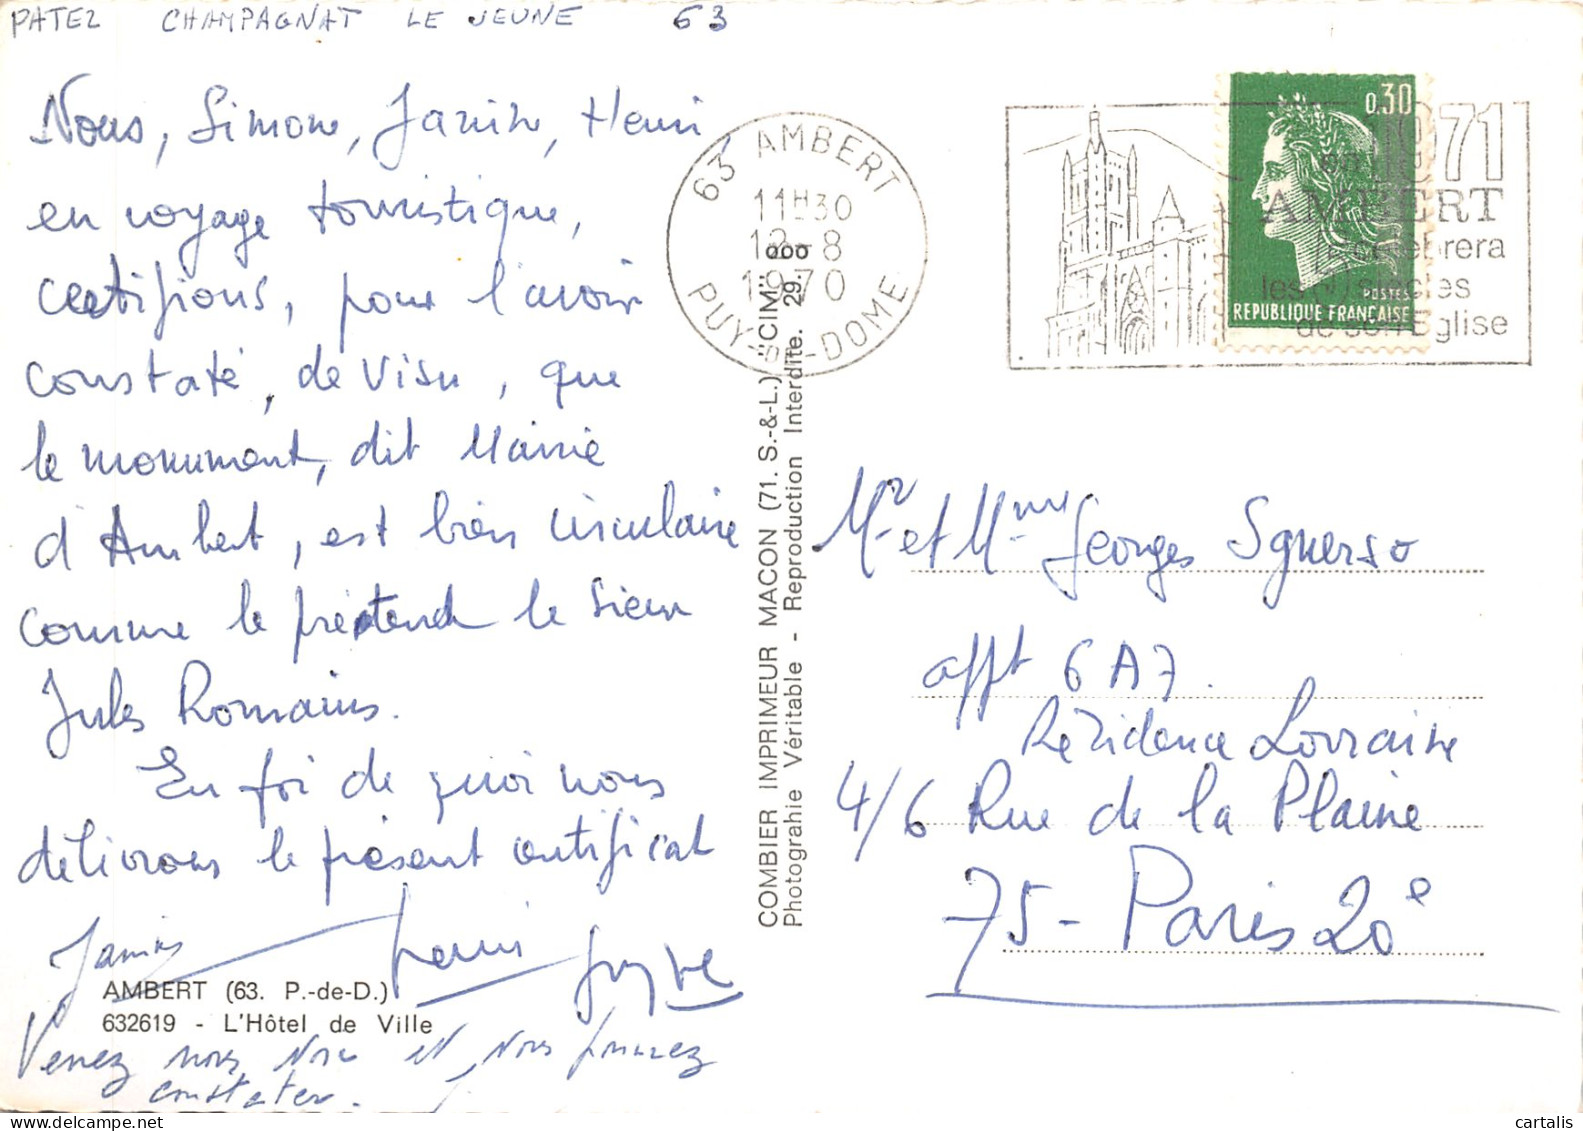 PATEZ CHAMPAGNAT LE JEUNE 63
Nous, Simone, Janine, Henri
en voyage touristique,
certifions, pour l'avoir
constaté, de visu, que
le monument, dit Mairie
d'Ambert, est bien circulaire
comme le prétend le sieur
Jules Romains.
En foi de quoi nous
délivrons le présent certificat
Janine
AMBERT (63. P.-de-D.)
632619 - L'Hôtel de Ville
Venez nous voir et vous pourrez
constater.
COMBIER IMPRIMEUR MACON (71. S.-&-L.) "CIM"
Photograhie Véritable - Reproduction Interdite. 29.
63 AMBERT
11H30
12-8
1970
PUY-DE-DOME
0,30
POSTES
REPUBLIQUE FRANÇAISE
1971
en
AMBERT
célèbrera
les siècles
de son Eglise
Mr et Mme Georges Sguerso
appt 6 A7.
Rézidence Lorraine
4/6 Rue de la Plaine
75 - Paris 20e
cartalis